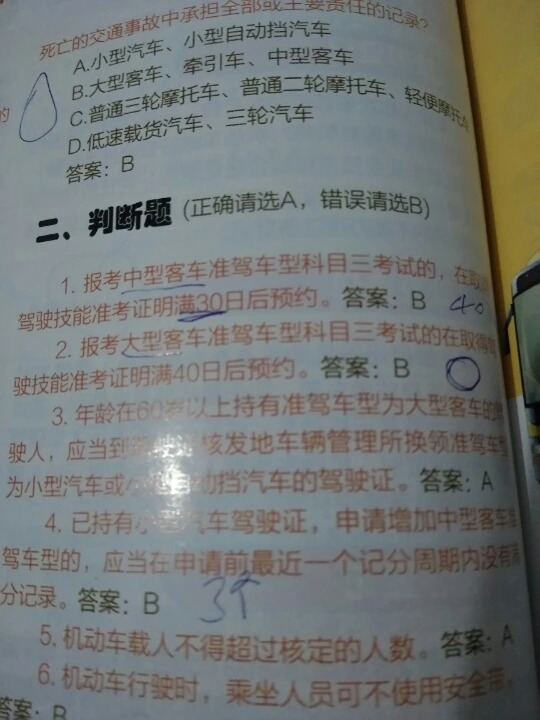 死亡的交通事故中承担全部或主要责任的记录?
A.小型汽车、小型自动挡汽车
B.大型客车、牵引车、中型客车
的
C.普通三轮摩托车、普通二轮摩托车、轻便摩托车
D.低速载货汽车、三轮汽车
答案：B
二、判断题 (正确请选A，错误请选B)
1. 报考中型客车准驾车型科目三考试的，在取
驾驶技能准考证明满30日后预约。答案：B 40
2. 报考大型客车准驾车型科目三考试的在取得
驶技能准考证明满40日后预约。答案：B
3. 年龄在60岁以上持有准驾车型为大型客车的
驶人，应当到 核发地车辆管理所换领准驾车型
为小型汽车或小型自动挡汽车的驾驶证。答案：A
4. 已持有小型汽车驾驶证，申请增加中型客车
驾车型的，应当在申请前最近一个记分周期内没有满
分记录。答案：B 3个
5. 机动车载人不得超过核定的人数。答案：A
6. 机动车行驶时，乘坐人员可不使用安全带。
答案：B